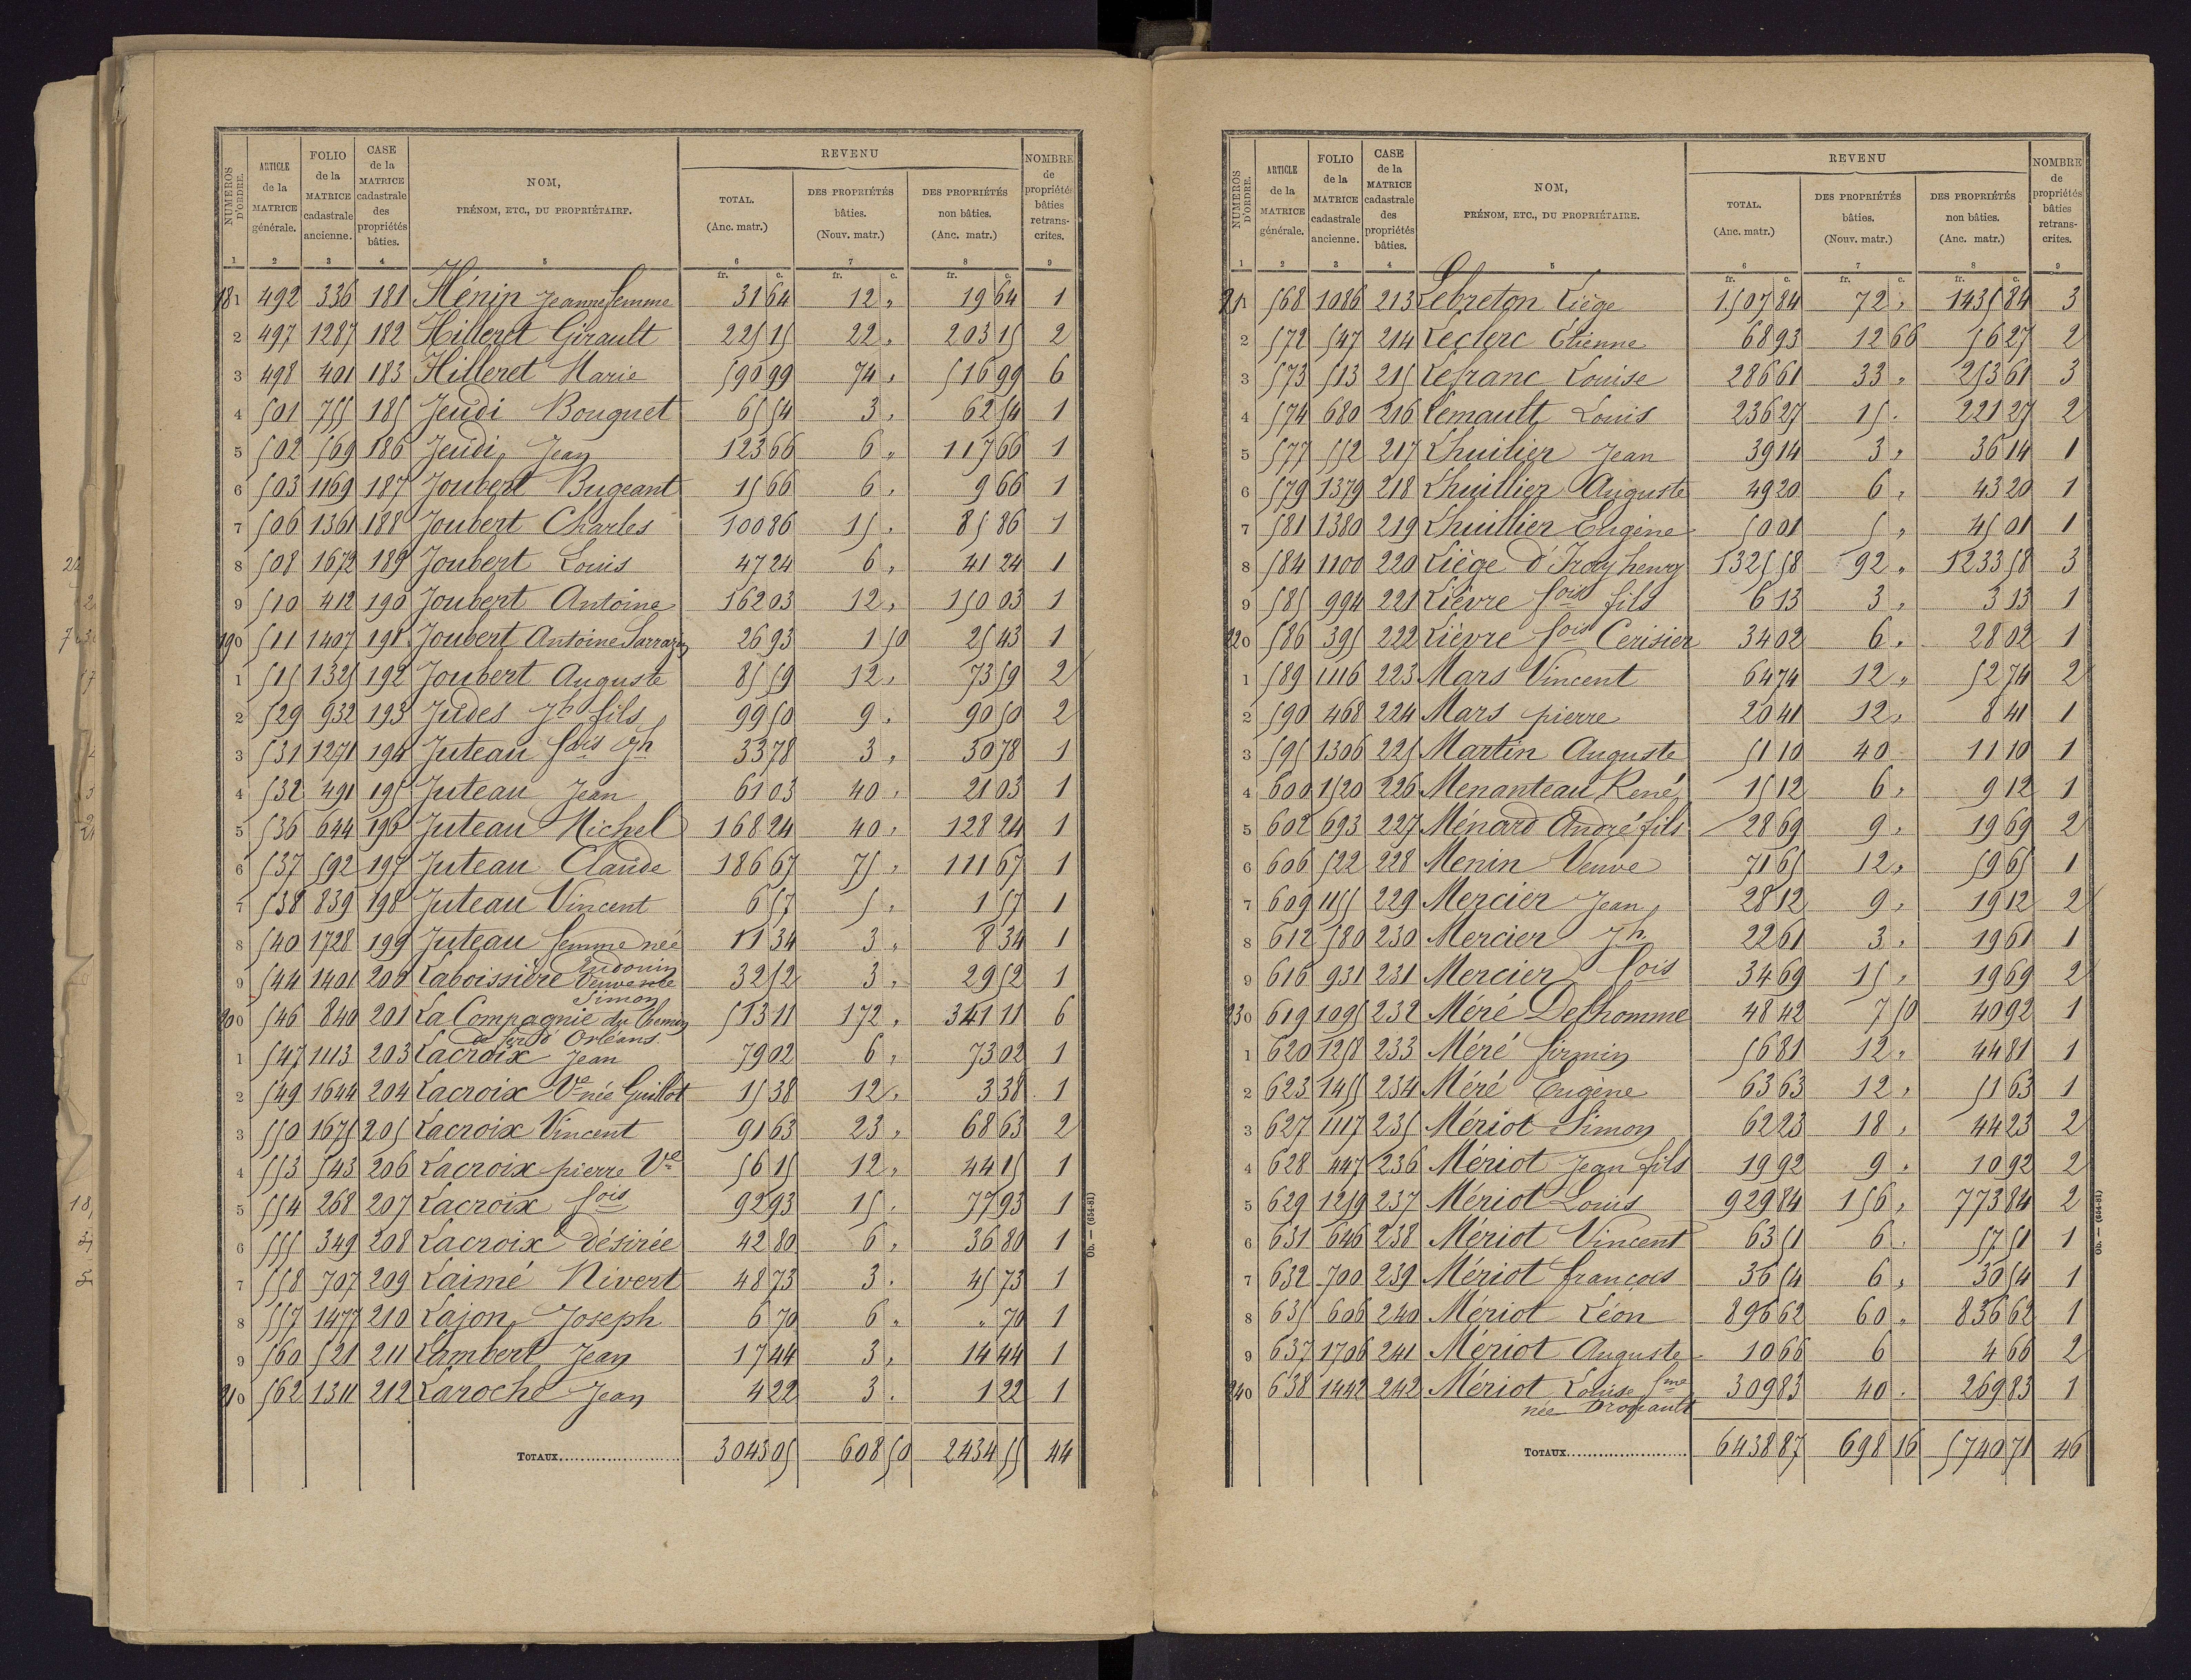 NUMÉROS D'ORDRE. | ARTICLE de la MATRICE générale. | FOLIO de la MATRICE cadastrale ancienne. | CASE de la MATRICE cadastrale des propriétés bâties. | NOM, PRÉNOM, ETC., DU PROPRIÉTAIRE. | REVENU TOTAL. (Anc. matr.) | DES PROPRIÉTÉS bâties. (Nouv. matr.) | DES PROPRIÉTÉS non bâties. (Anc. matr.) | NOMBRE de propriétés bâties retranscrites.
1 2 3 4 5 6 7 8 9
fr. c. fr. c. fr. c.
181 492 336 181 Hénin Jeanne femme 31 64 12 " 19 64 1
2 497 1287 182 Hilleret Girault 225 15 22 " 203 15 2
3 498 401 183 Hilleret Marie 590 99 74 " 516 99 6
4 501 755 185 Jeudi Bouguet 65 54 3 " 62 54 1
5 502 569 186 Jeudi Jean 123 66 6 " 117 66 1
6 503 1169 187 Joubert Bugeant 15 66 6 " 9 66 1
7 506 1361 188 Joubert Charles 100 86 15 " 85 86 1
8 508 1672 189 Joubert Louis 47 24 6 " 41 24 1
9 510 412 190 Joubert Antoine 162 03 12 " 150 03 1
190 511 1407 191 Joubert Antoine Sarrazin 26 93 1 50 25 43 1
1 515 1325 192 Joubert Auguste 85 59 12 " 73 59 2
2 529 932 193 Judes Jh fils 99 50 9 " 90 50 2
3 531 1271 194 Juteau fois Jh 33 78 3 " 30 78 1
4 532 491 195 Juteau Jean 61 03 40 " 21 03 1
5 536 644 196 Juteau Michel 168 24 40 " 128 24 1
6 537 592 197 Juteau Claude 186 67 75 " 111 67 1
7 538 839 198 Juteau Vincent 6 57 5 " 1 57 1
8 540 1728 199 Juteau femme née 11 34 3 " 8 34 1
Eudouin
9 544 1401 200 Laboissière Veuve née 32 52 3 " 29 52 1
Simon
200 546 840 201 La Compagnie du Chemin 513 11 172 " 341 11 6
de fer d'Orléans.
1 547 1113 203 Lacroix Jean 79 02 6 " 73 02 1
2 549 1644 204 Lacroix Ve née Guillot 15 38 12 " 3 38 1
3 550 1675 205 Lacroix Vincent 91 63 23 " 68 63 2
4 553 543 206 Lacroix pierre Ve 56 15 12 " 44 15 1
5 554 268 207 Lacroix fois 92 93 15 " 77 93 1
6 555 349 208 Lacroix désirée 42 80 6 " 36 80 1
7 558 707 209 Laimé Nivert 48 73 3 " 45 73 1
8 557 1477 210 Lajon Joseph 6 70 6 " " 70 1
9 560 521 211 Lambert Jean 17 44 3 " 14 44 1
210 562 1311 212 Laroche Jean 4 22 3 " 1 22 1
TOTAUX........................ 3043 05 608 50 2434 55 44
Ob. — (654-81)
NUMÉROS D'ORDRE. | ARTICLE de la MATRICE générale. | FOLIO de la MATRICE cadastrale ancienne. | CASE de la MATRICE cadastrale des propriétés bâties. | NOM, PRÉNOM, ETC., DU PROPRIÉTAIRE. | REVENU TOTAL. (Anc. matr.) | DES PROPRIÉTÉS bâties. (Nouv. matr.) | DES PROPRIÉTÉS non bâties. (Anc. matr.) | NOMBRE de propriétés bâties retranscrites.
1 2 3 4 5 6 7 8 9
fr. c. fr. c. fr. c.
211 568 1086 213 Lebreton Liège 1507 84 72 " 1435 84 3
2 572 547 214 Leclerc Etienne 68 93 12 66 56 27 2
3 573 513 215 Lefranc Louise 286 61 33 " 253 61 3
4 574 680 216 Lemault Louis 236 27 15 " 221 27 2
5 577 552 217 Lhuilier Jean 39 14 3 " 36 14 1
6 579 1379 218 Lhuillier Auguste 49 20 6 " 43 20 1
7 581 1380 219 Lhuillier Eugène 50 01 5 " 45 01 1
8 584 1100 220 Liège d'Iray henry 1325 58 92 " 1233 58 3
9 585 994 221 Lièvre fois fils 6 13 3 " 3 13 1
220 586 395 222 Lièvre fois Cerisier 34 02 6 " 28 02 1
1 589 1116 223 Mars Vincent 64 74 12 " 52 74 2
2 590 468 224 Mars pierre 20 41 12 " 8 41 1
3 595 1306 225 Martin Auguste 51 10 40 11 10 1
4 600 1520 226 Menanteau René 15 12 6 " 9 12 1
5 602 693 227 Ménard André fils 28 69 9 " 19 69 2
6 606 522 228 Menin Veuve 71 65 12 " 59 65 1
7 609 1155 229 Mercier Jean 28 12 9 " 19 12 2
8 612 580 230 Mercier Jh 22 61 3 " 19 61 1
9 616 931 231 Mercier fois 34 69 15 " 19 69 2
230 619 1095 232 Méré Delhomme 48 42 7 50 40 92 1
1 620 1258 233 Méré firmin 56 81 12 " 44 81 1
2 623 1455 234 Méré Eugène 63 63 12 " 51 63 1
3 627 1117 235 Mériot Simon 62 23 18 " 44 23 2
4 628 447 236 Mériot Jean fils 19 92 9 " 10 92 2
5 629 1259 237 Mériot Louis 929 84 156 " 773 84 2
6 631 646 238 Mériot Vincent 63 51 6 57 51 1
7 632 700 239 Mériot françois 36 54 6 " 30 54 1
8 635 606 240 Mériot Léon 896 62 60 " 836 62 1
9 637 1706 241 Mériot Auguste 10 66 6 4 66 2
240 638 1442 242 Mériot Louise fme 309 83 40 " 269 83 1
née
TOTAUX........................ 6438 87 698 16 5740 71 46
Ob. — (654-81)